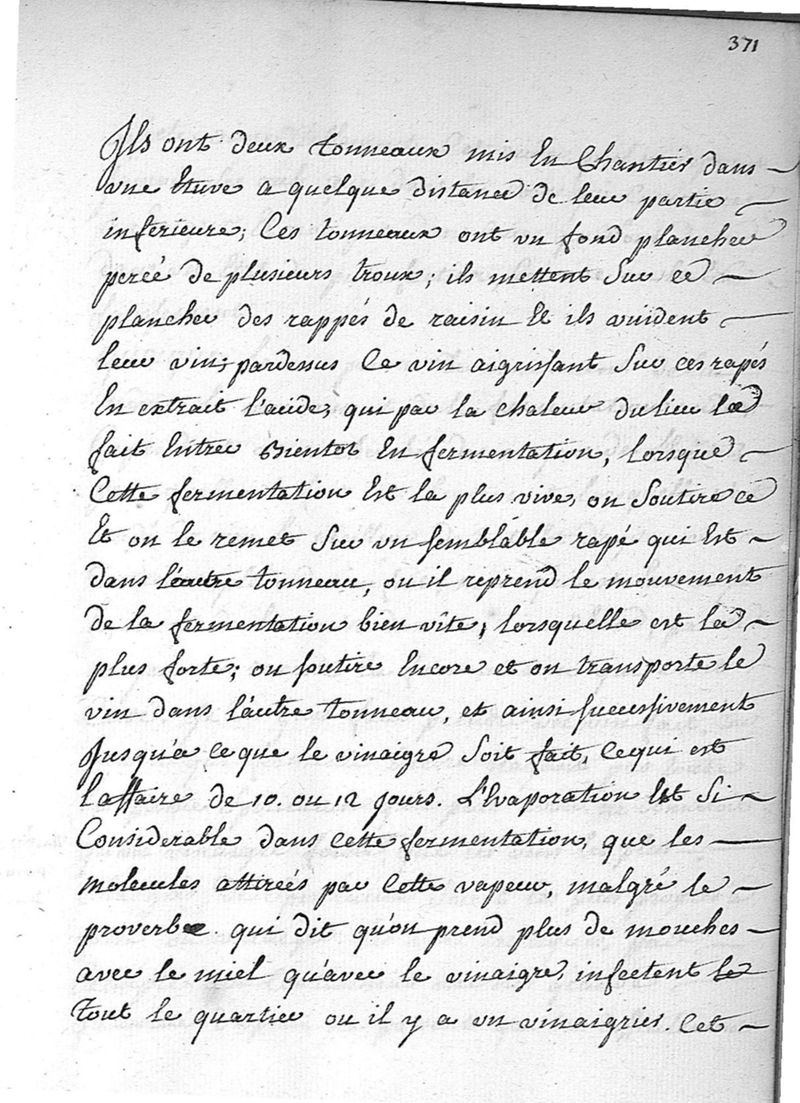 371
Ils ont deux tonneaux mis En Chantier dans
vne Etuve a quelque distance de leur partie
inferieure; Ces tonneaux ont vn fond plancher
percé de plusieurs troux; ils mettent Sur ce
plancher des rappés de raisin Et ils vuident
leur vin; pardessus Ce vin aigrissant Sur ces rapés
En extrait l'acide, qui par la chaleur du lieu le
fait Entrer Bientot En fermentation, lorsque
Cette fermentation Est la plus vive, on Soutire ce
Et on le remet Sur vn semblable rapé qui Est
dans l'autre tonneau, ou il reprend le mouvement
de la fermentation bien vîte, lorsquelle est la
plus forte; on soutire Encore et on transporte le
vin dans l'autre tonneau, et ainsi successivement
Jusqu'a ce que le vinaigre Soit fait, Cequi est
l'affaire de 10. ou 12 Jours. L'Evaporation Est Si
Considerable dans Cette fermentation, que les
molecules attireés par Cette vapeur, malgré le
proverbe qui dit qu'on prend plus de mouches
avec le miel qu'avec le vinaigre, infectent le
Tout le quartier ou il y a vn vinaigrier. Cet